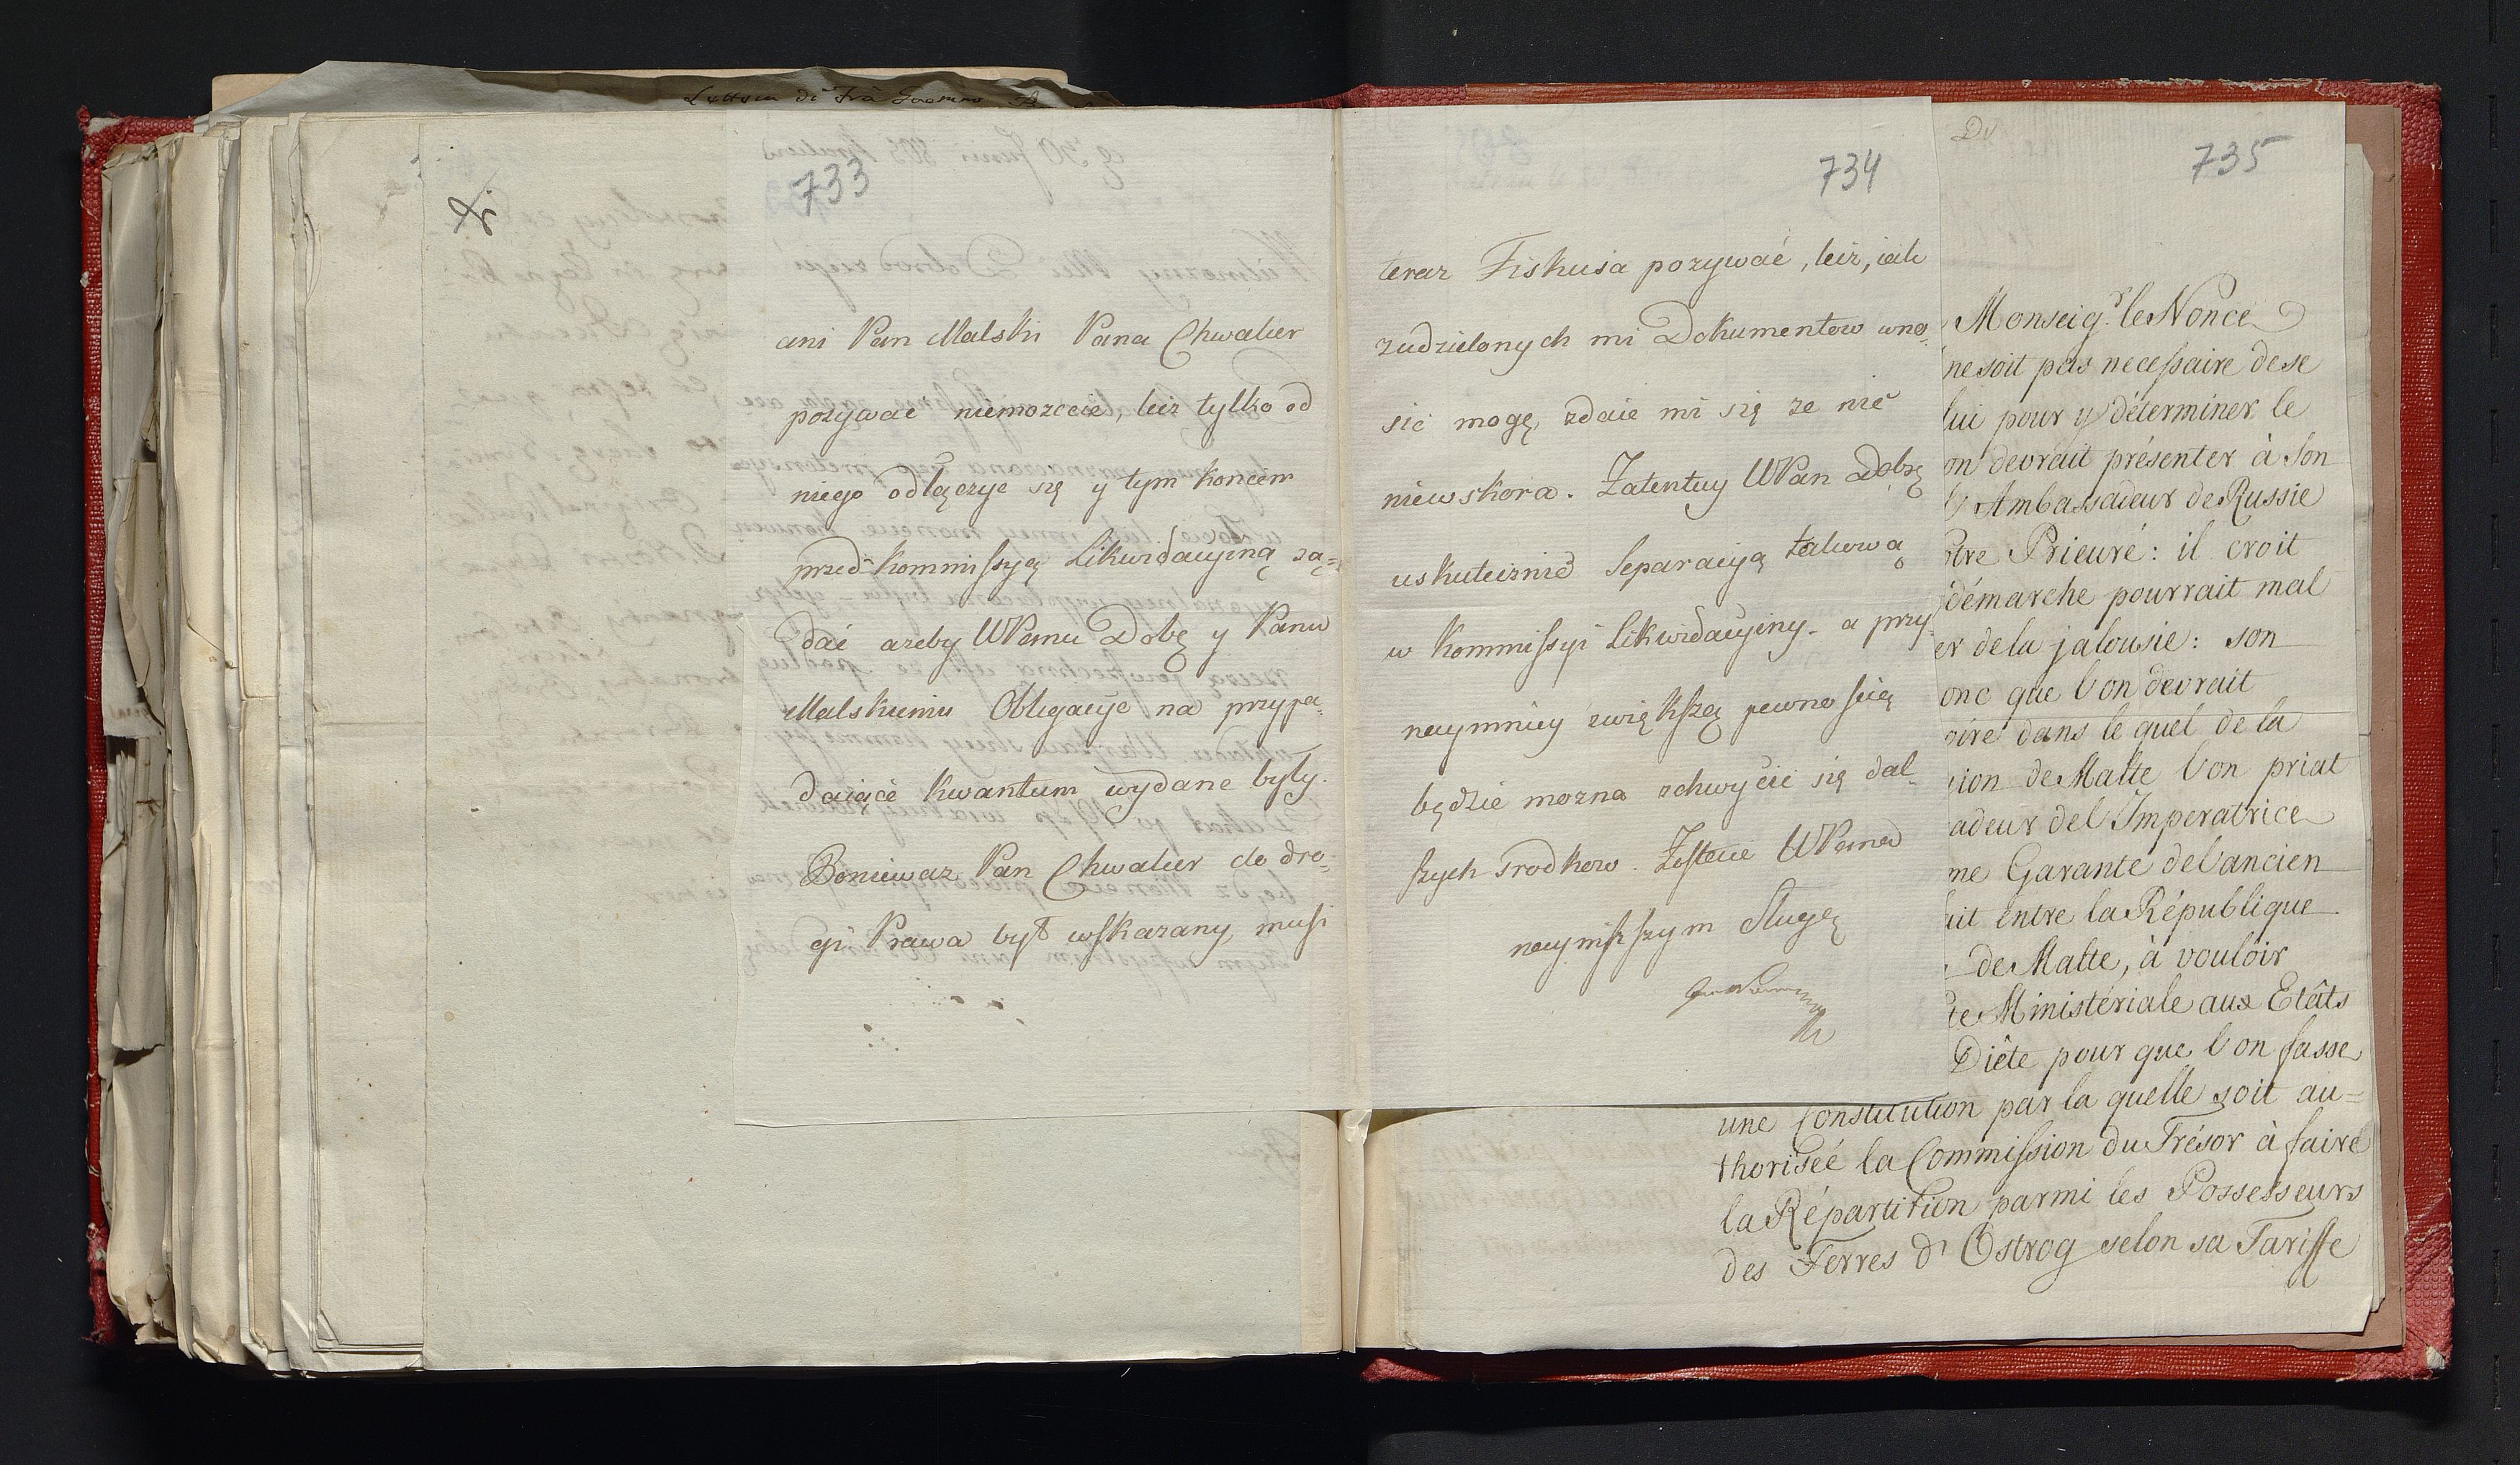 733
ani Pan Malski Pana Chwalier
pozywać niemozecie, lecz tylko od
niego odłączyc się y tym koncem
przed Kommissyą Likwidacyiną żą=
dać azeby WPanu Dobę y Panu
Malskiemu Obligacye na przypa=
daiące kwantum wydane były.
Poniewaz Pan Chwalier do dro=
gi Prawa był wskazany, musi
734
teraz Fiskusa pozywać, lecz, iak
zudzielonych mi Dokumentow wno=
sić mogę, zdaie mi się ze nic
niewskora. Zatentuy WPan Dobrę
uskutecznić Separacyą takową
w Kommissyi Likwidacyiny. a przy=
naymniey zwiększą pewnością
będzie mozna zchwycić się dal=
szych srodkow. Zostaie WPana
naynizszym Sługą
735
Monseigr. le Nonce
ne soit pas necessaire de se
lui pour y déterminer le
on devrait présenter à Son
Ambassadeur de Russie
otre Prieuré: il croit
démarche pourrait mal
er de la jalousie: son
onc que l'on devrait
oire dans le quel de la
ion de Malte l'on priat
adeur de l'Imperatrice
me Garante de l'ancien
ait entre la République
de Malte, à vouloir
te Ministériale aux Etâts
Diête pour que l'on fasse
une Constitution par la quelle soit au=
thoriséé la Commission du Trésor à faire
la Répartition parmi les Possesseurs
des Terres d'Ostrog selon sa Tariffe